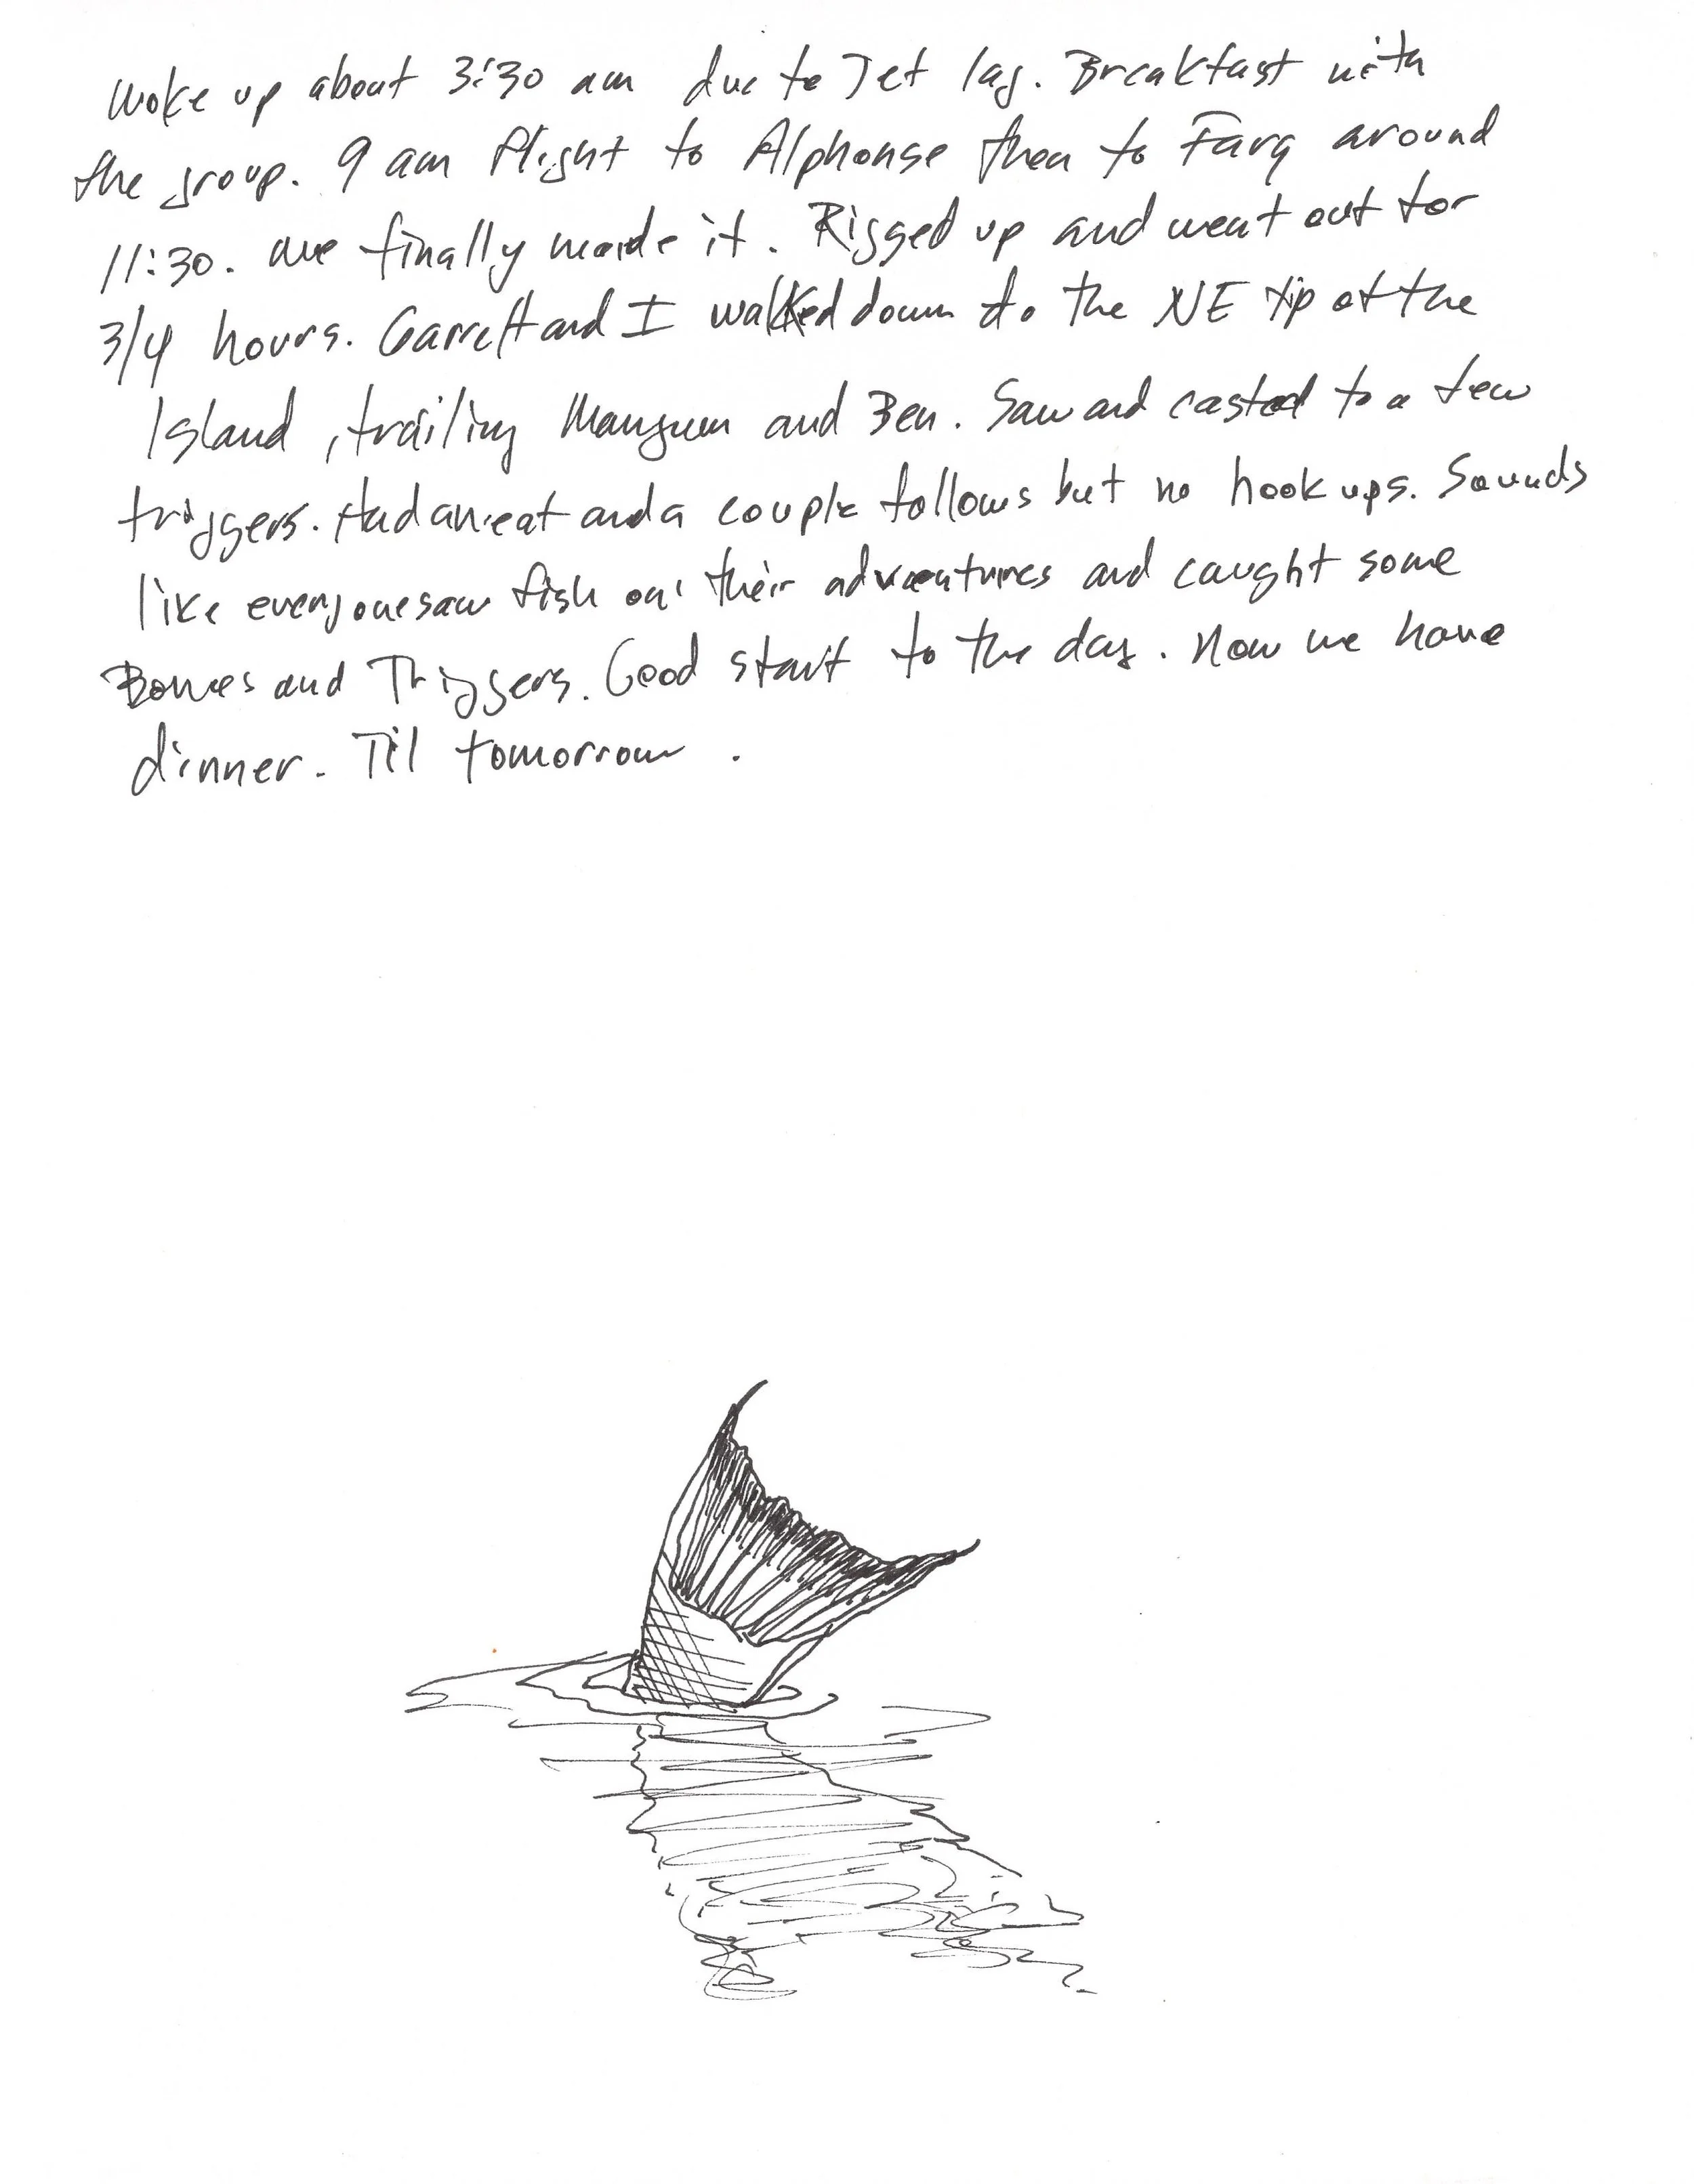 Woke up about 3:30 am due to Jet lag. Breakfast with
the group. 9 am flight to Alphonse then to Farq around
11:30. We finally made it. Rigged up and went out for
3/4 hours. Garrett and I walked down to the NE tip of the
Island, trailing Mangum and Ben. Saw and casted to a few
triggers. Had an eat and a couple follows but no hook ups. Sounds
like everyone saw fish on their adventures and caught some
Bones and Triggers. Good start to the day. Now we have
dinner. Til tomorrow.